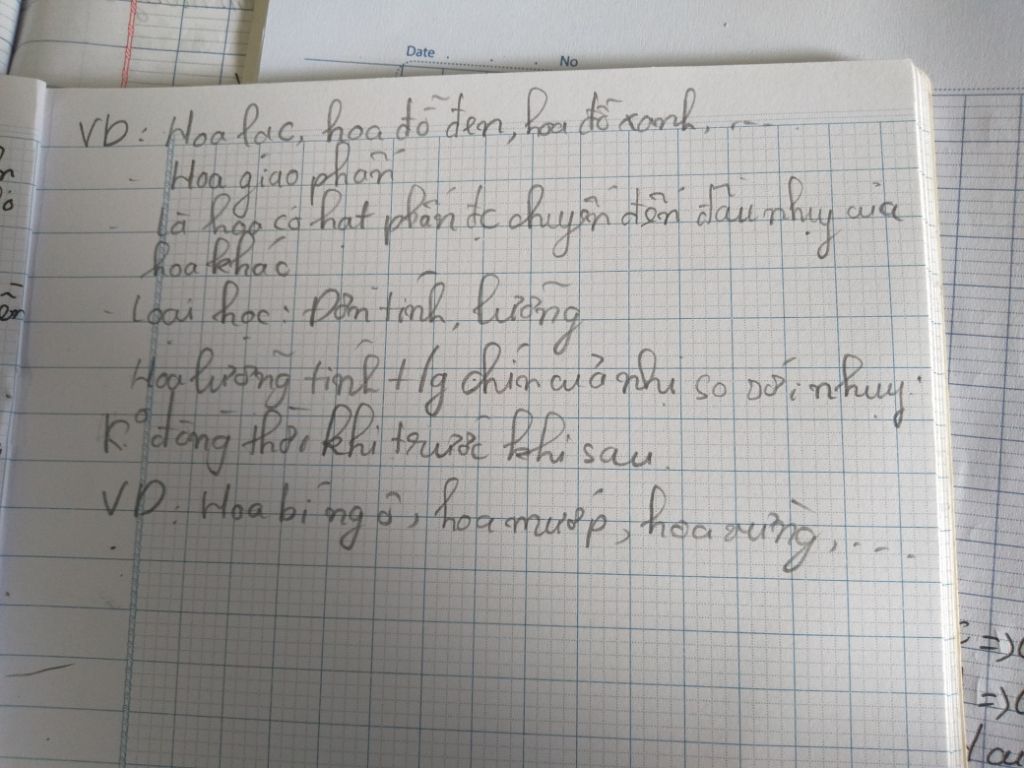 Date No
VD: Hoa lạc, hoa đỗ đen, hoa đỗ xanh, ...
- Hoa giao phấn
- Là hoa có hạt phấn đc chuyển đến đầu nhụy của
hoa khác
- Loại học: Đơn tính, lưỡng
Hoa lưỡng tính + /g chín của nhị so với nhụy:
K° đồng thời khi trước khi sau.
VD: Hoa bí ngô, hoa mướp, hoa vừng, ...
=>
=>